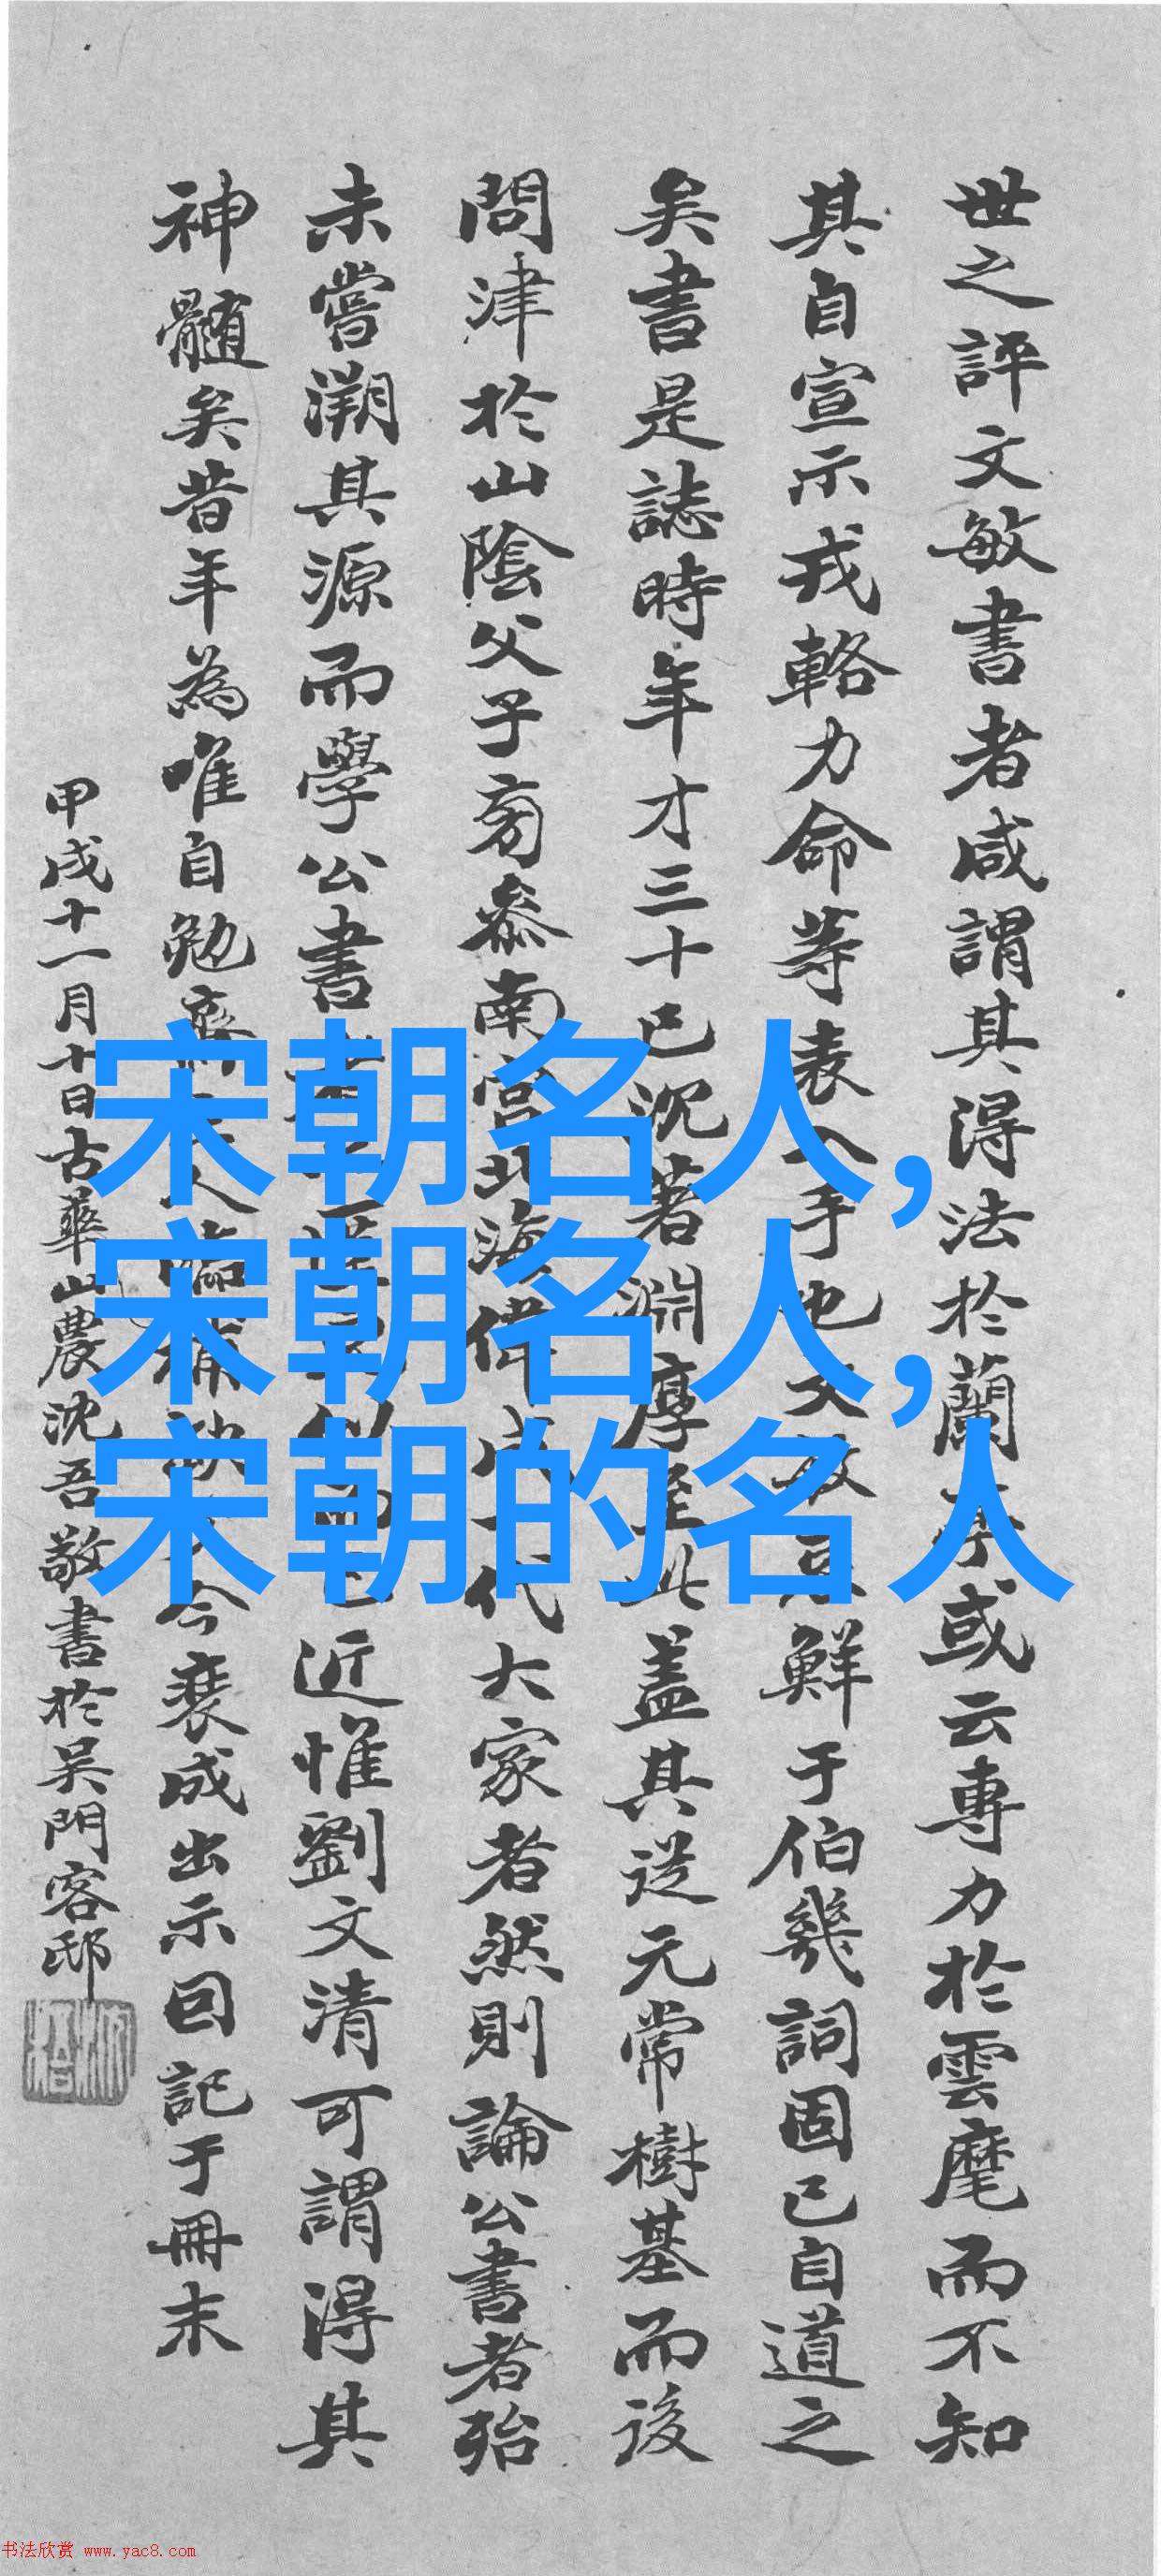 世之評文敏書者咸謂其得法於蘭亭或云專力於雲麾而不知
其自宣示戎輅力命等表入手也文敏跋鮮于伯幾詞固已自道之
矣書是誌時年才三十已沉著淵厚至此蓋其從元常樹基而後
問津於山陰父子旁參南宮北海偉成一代大家者然則論公書者殆
未嘗溯其源而學公書
近惟劉文清可謂得其
神髓矣昔年為唯自勉齋
今裝成出示囙記于冊末
甲戌十一月十日古華山農沈吾敬書於吴門客邸
宋朝名人,
宋朝名人,
宋朝的名人
书法欣赏 www.yac8.com